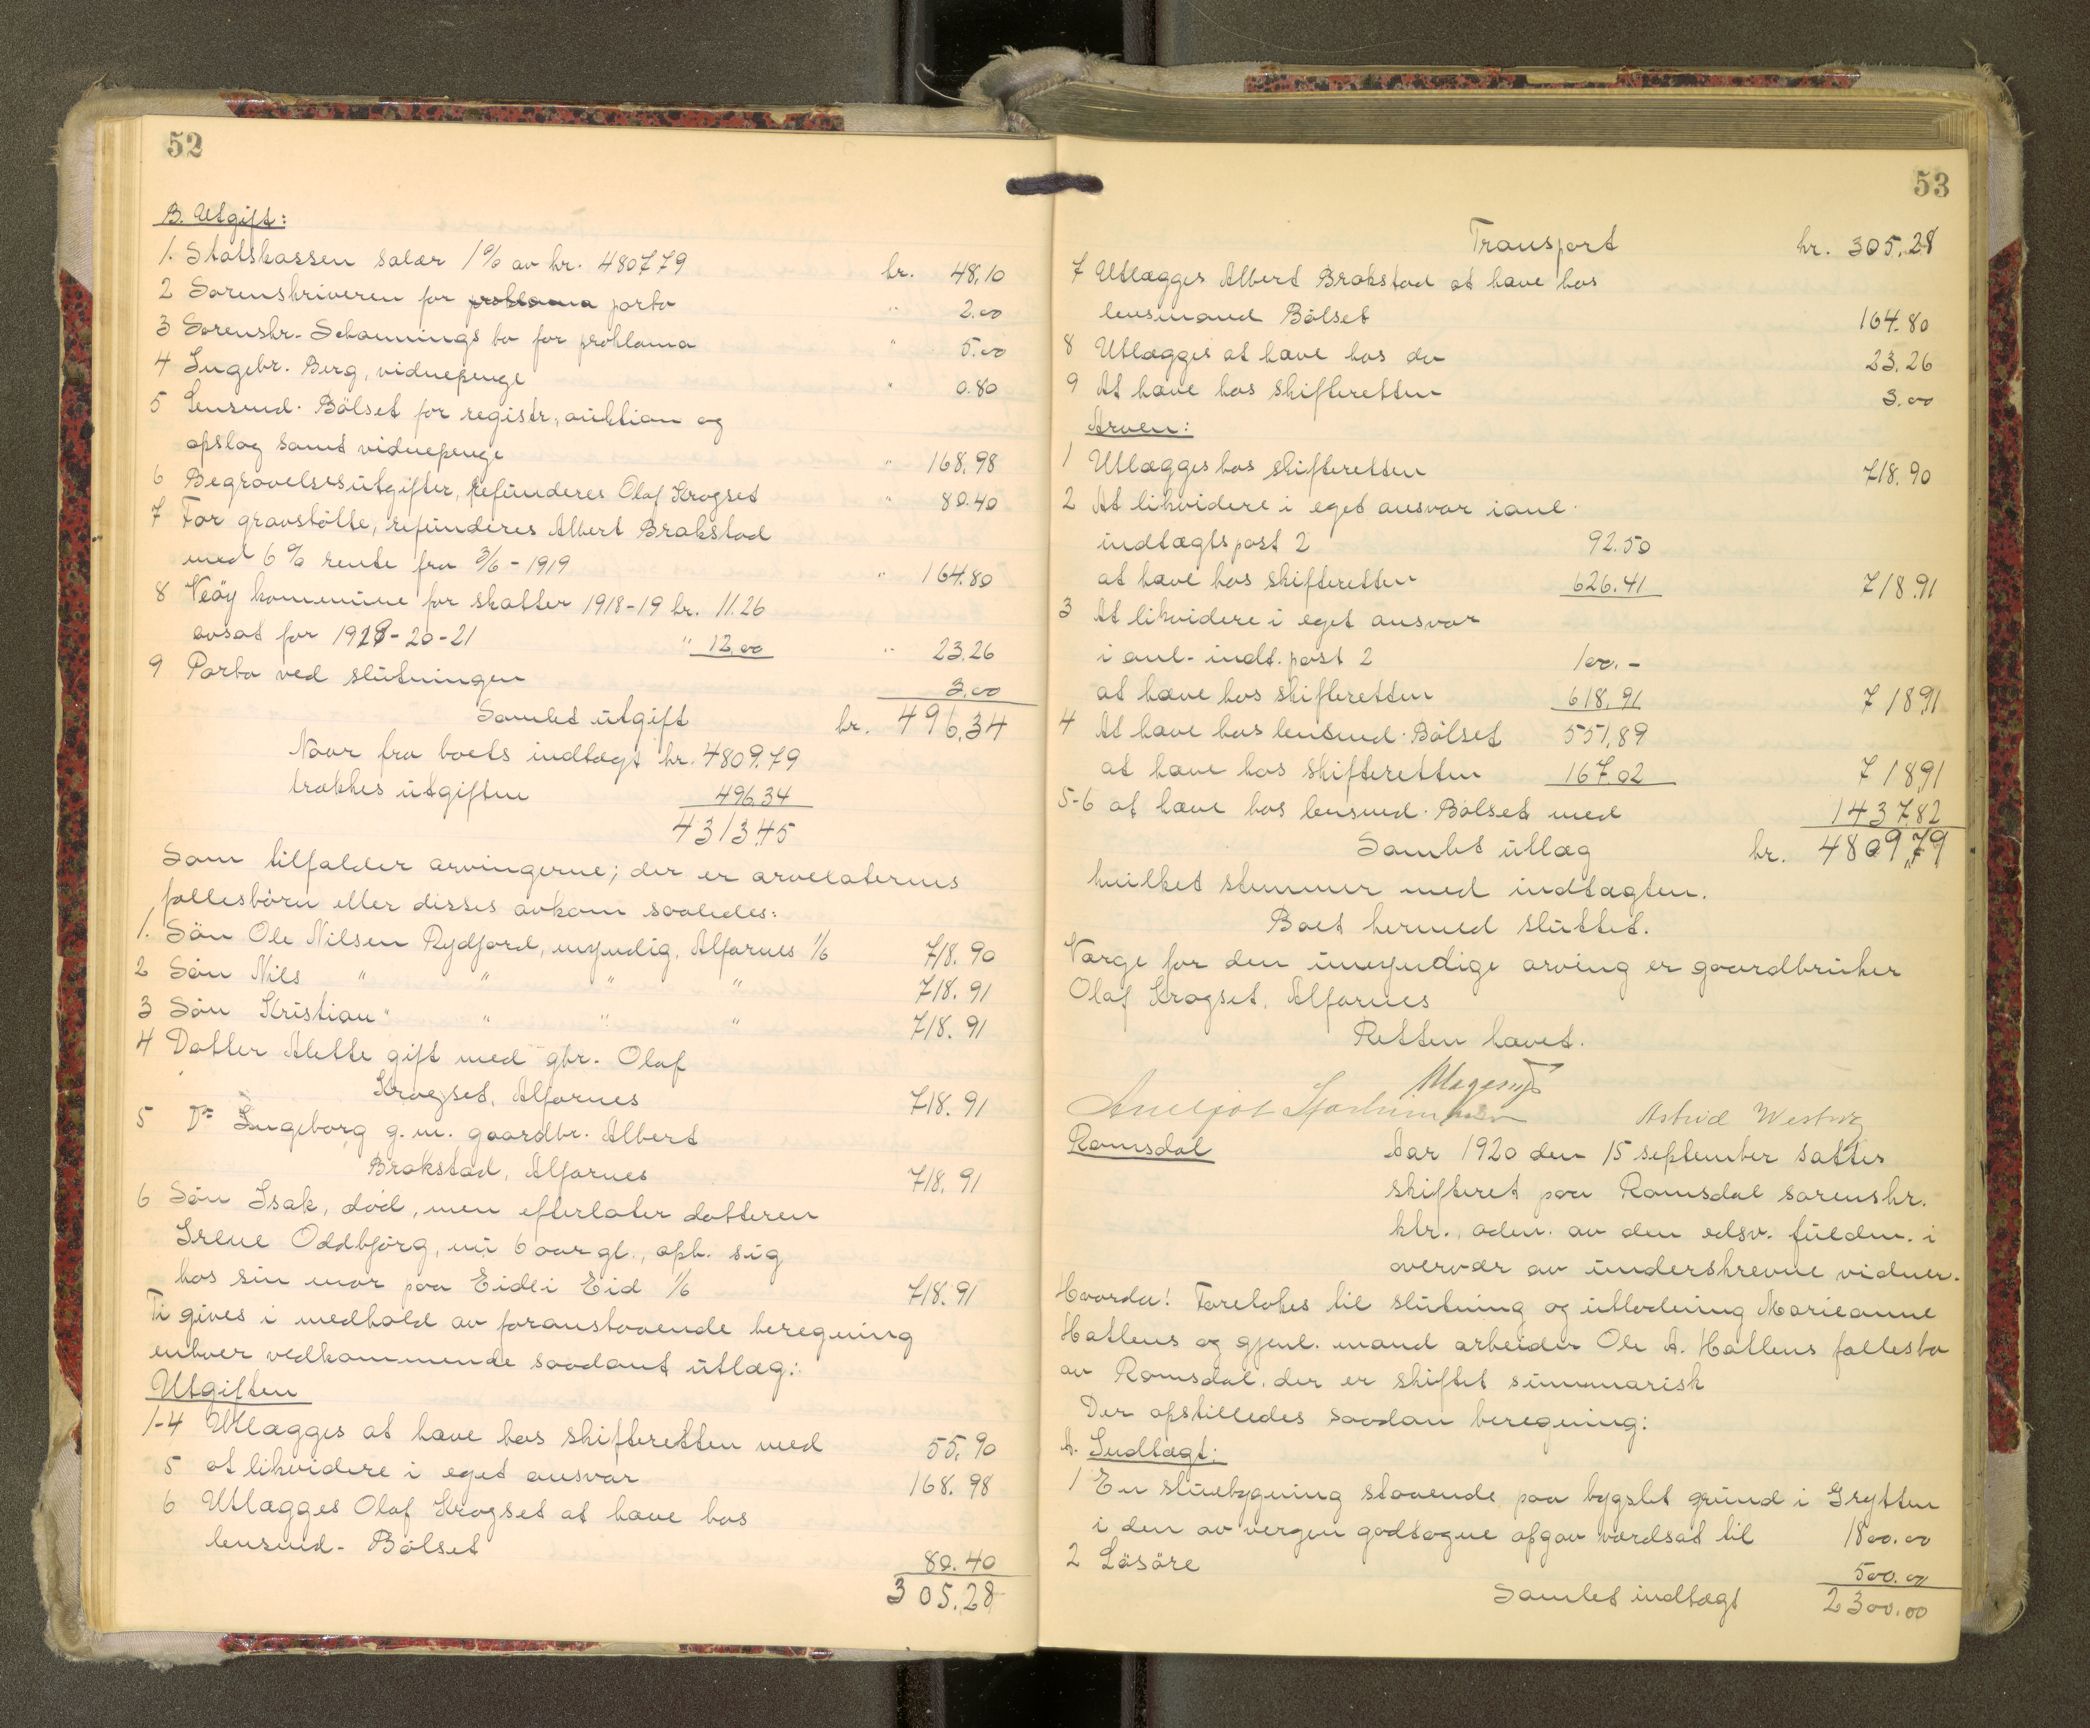 52
B. Utgift:
1. Statskassen salær 1% av kr. 480779 kr. 48,10
2 Sorenskriveren for proklama porto " 2.00
3 Sorenskr. Schannings bo for proklama " 5.00
4 Ingebr. Berg, vidnepenge " 0.80
5 Lensmd. Bölset for registr, auktion og
opslag samt vidnepenge " 168.98
6 Begravelsesutgifter, refunderes Olaf Krogset " 80.40
7 For gravstötte, refunderes Albert Brakstad
med 6 % rente fra 3/6 - 1919 " 164.80
8 Veöy kommune for skatter 1918-19 kr. 11.26
avsat for 1919-20-21 " 12.00 " 23.26
9 Porto ved slutningen 3.00
Samlet utgift kr. 496.34
Naar fra boets indtægt kr. 4809.79
trækkes utgiften 496.34
4313.45
Som tilfalder arvingerne; der er arvelaternes
fællesbörn eller disses avkom saaledes:
1. Sön Ole Nilsen Rydjord, myndig, Alfarnes 1/6 718.90
2 Sön Nils " " " " 718.91
3 Sön Kristian " " " " 718.91
4 Datter Alette gift med gbr. Olaf
Krogset, Alfarnes 718.91
5 Do Ingeborg g. m. gaardbr. Albert
Brakstad, Alfarnes 718.91
6 Sön Isak, död, men efterlater datteren
Irene Oddbjörg, nu 6 aar gl., oph. sig
hos sin mor paa Eide i Eid 1/6 718.91
Ti gives i medhold av foranstaaende beregning
enhver vedkommende saadant utlæg:
Utgiften
1-4 Utlægges at hæve hos skifteretten med 55.90
5 at likvidere i eget ansvar 168.98
6 Utlægges Olaf Krogset at hæve hos
lensmd. Bölset 80.40
305.28
53
Transport kr. 305.28
7 Utlægges Albert Brakstad at hæve hos
lensmand Bölset 164.80
8 Utlægges at hæve hos do 23.26
9 At hæve hos skifteretten 3.00
Arven:
1 Utlægges hos skifteretten 718.90
2 At likvidere i eget ansvar i anl.
indtægtspost 2 92.50
at hæve hos skifteretten 626.41 718.91
3 At likvidere i eget ansvar
i anl. indt. post 2 100.-
at hæve hos skifteretten 618,91 718,91
4 At hæve hos lensmd. Bölset 551,89
at hæve hos skifteretten 167.02 718,91
5-6 at hæve hos lensmd. Bölset med 1437.82
Samlet utlæg kr. 4809,79
hvilket stemmer med indtægten.
Boet hermed sluttet.
Værge for den umyndige arving er gaardbruker
Olaf Krogset, Alfarnes
Retten hævet.
Astrid
Romsdal Aar 1920 den 15 september sattes
skifteret paa Romsdal sorenskr.
ktr., adm. av den edsv. fuldm. i
overvær av underskrevne vidner.
Hvorda! Foretokes til slutning og utlodning Marieanne
Hatlens og gjenl. mand arbeider Ole A. Hatlens fællesbo
av Romsdal, der er skiftet summarisk
Der opstilledes saadan beregning:
A. Indtægt:
1 En stuebygning staaende paa bygslet grund i Grytten
i den av vergen godtagne opgav værdsat til 1800.00
2 Lösöre 500.00
Samlet indtægt 2300.00